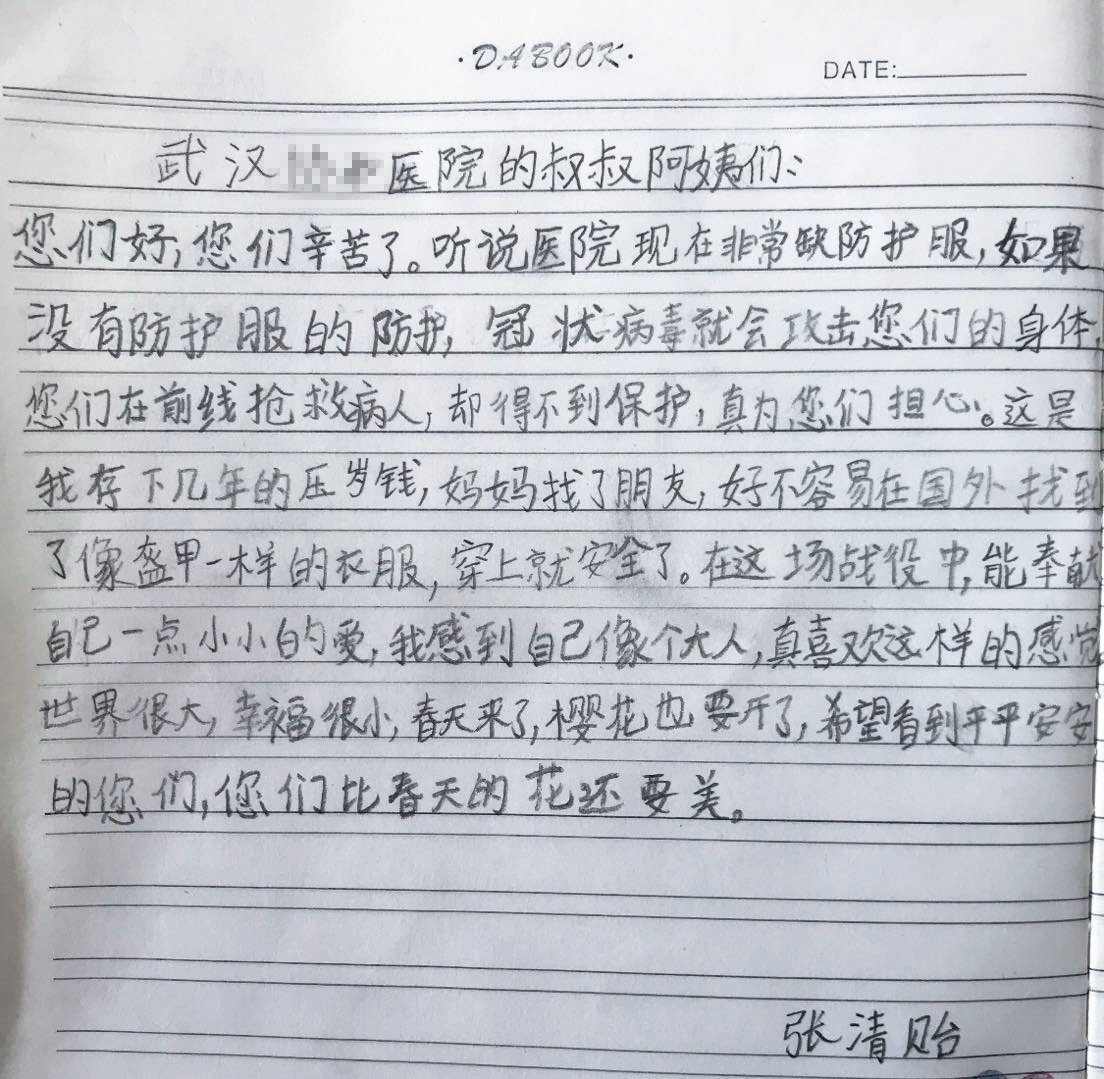 ·DABOOK·
DATE:
武汉医院的叔叔阿姨们：
您们好，您们辛苦了。听说医院现在非常缺防护服，如果
没有防护服的防护，冠状病毒就会攻击您们的身体，
您们在前线抢救病人，却得不到保护，真为您们担心。这是
我存下几年的压岁钱，妈妈找了朋友，好不容易在国外找到
了像盔甲一样的衣服，穿上就安全了。在这场战役中，能奉献
自己一点小小的爱，我感到自己像个大人，真喜欢这样的感觉
世界很大，幸福很小，春天来了，樱花也要开了，希望看到平平安安
的您们，您们比春天的花还要美。
张清贻